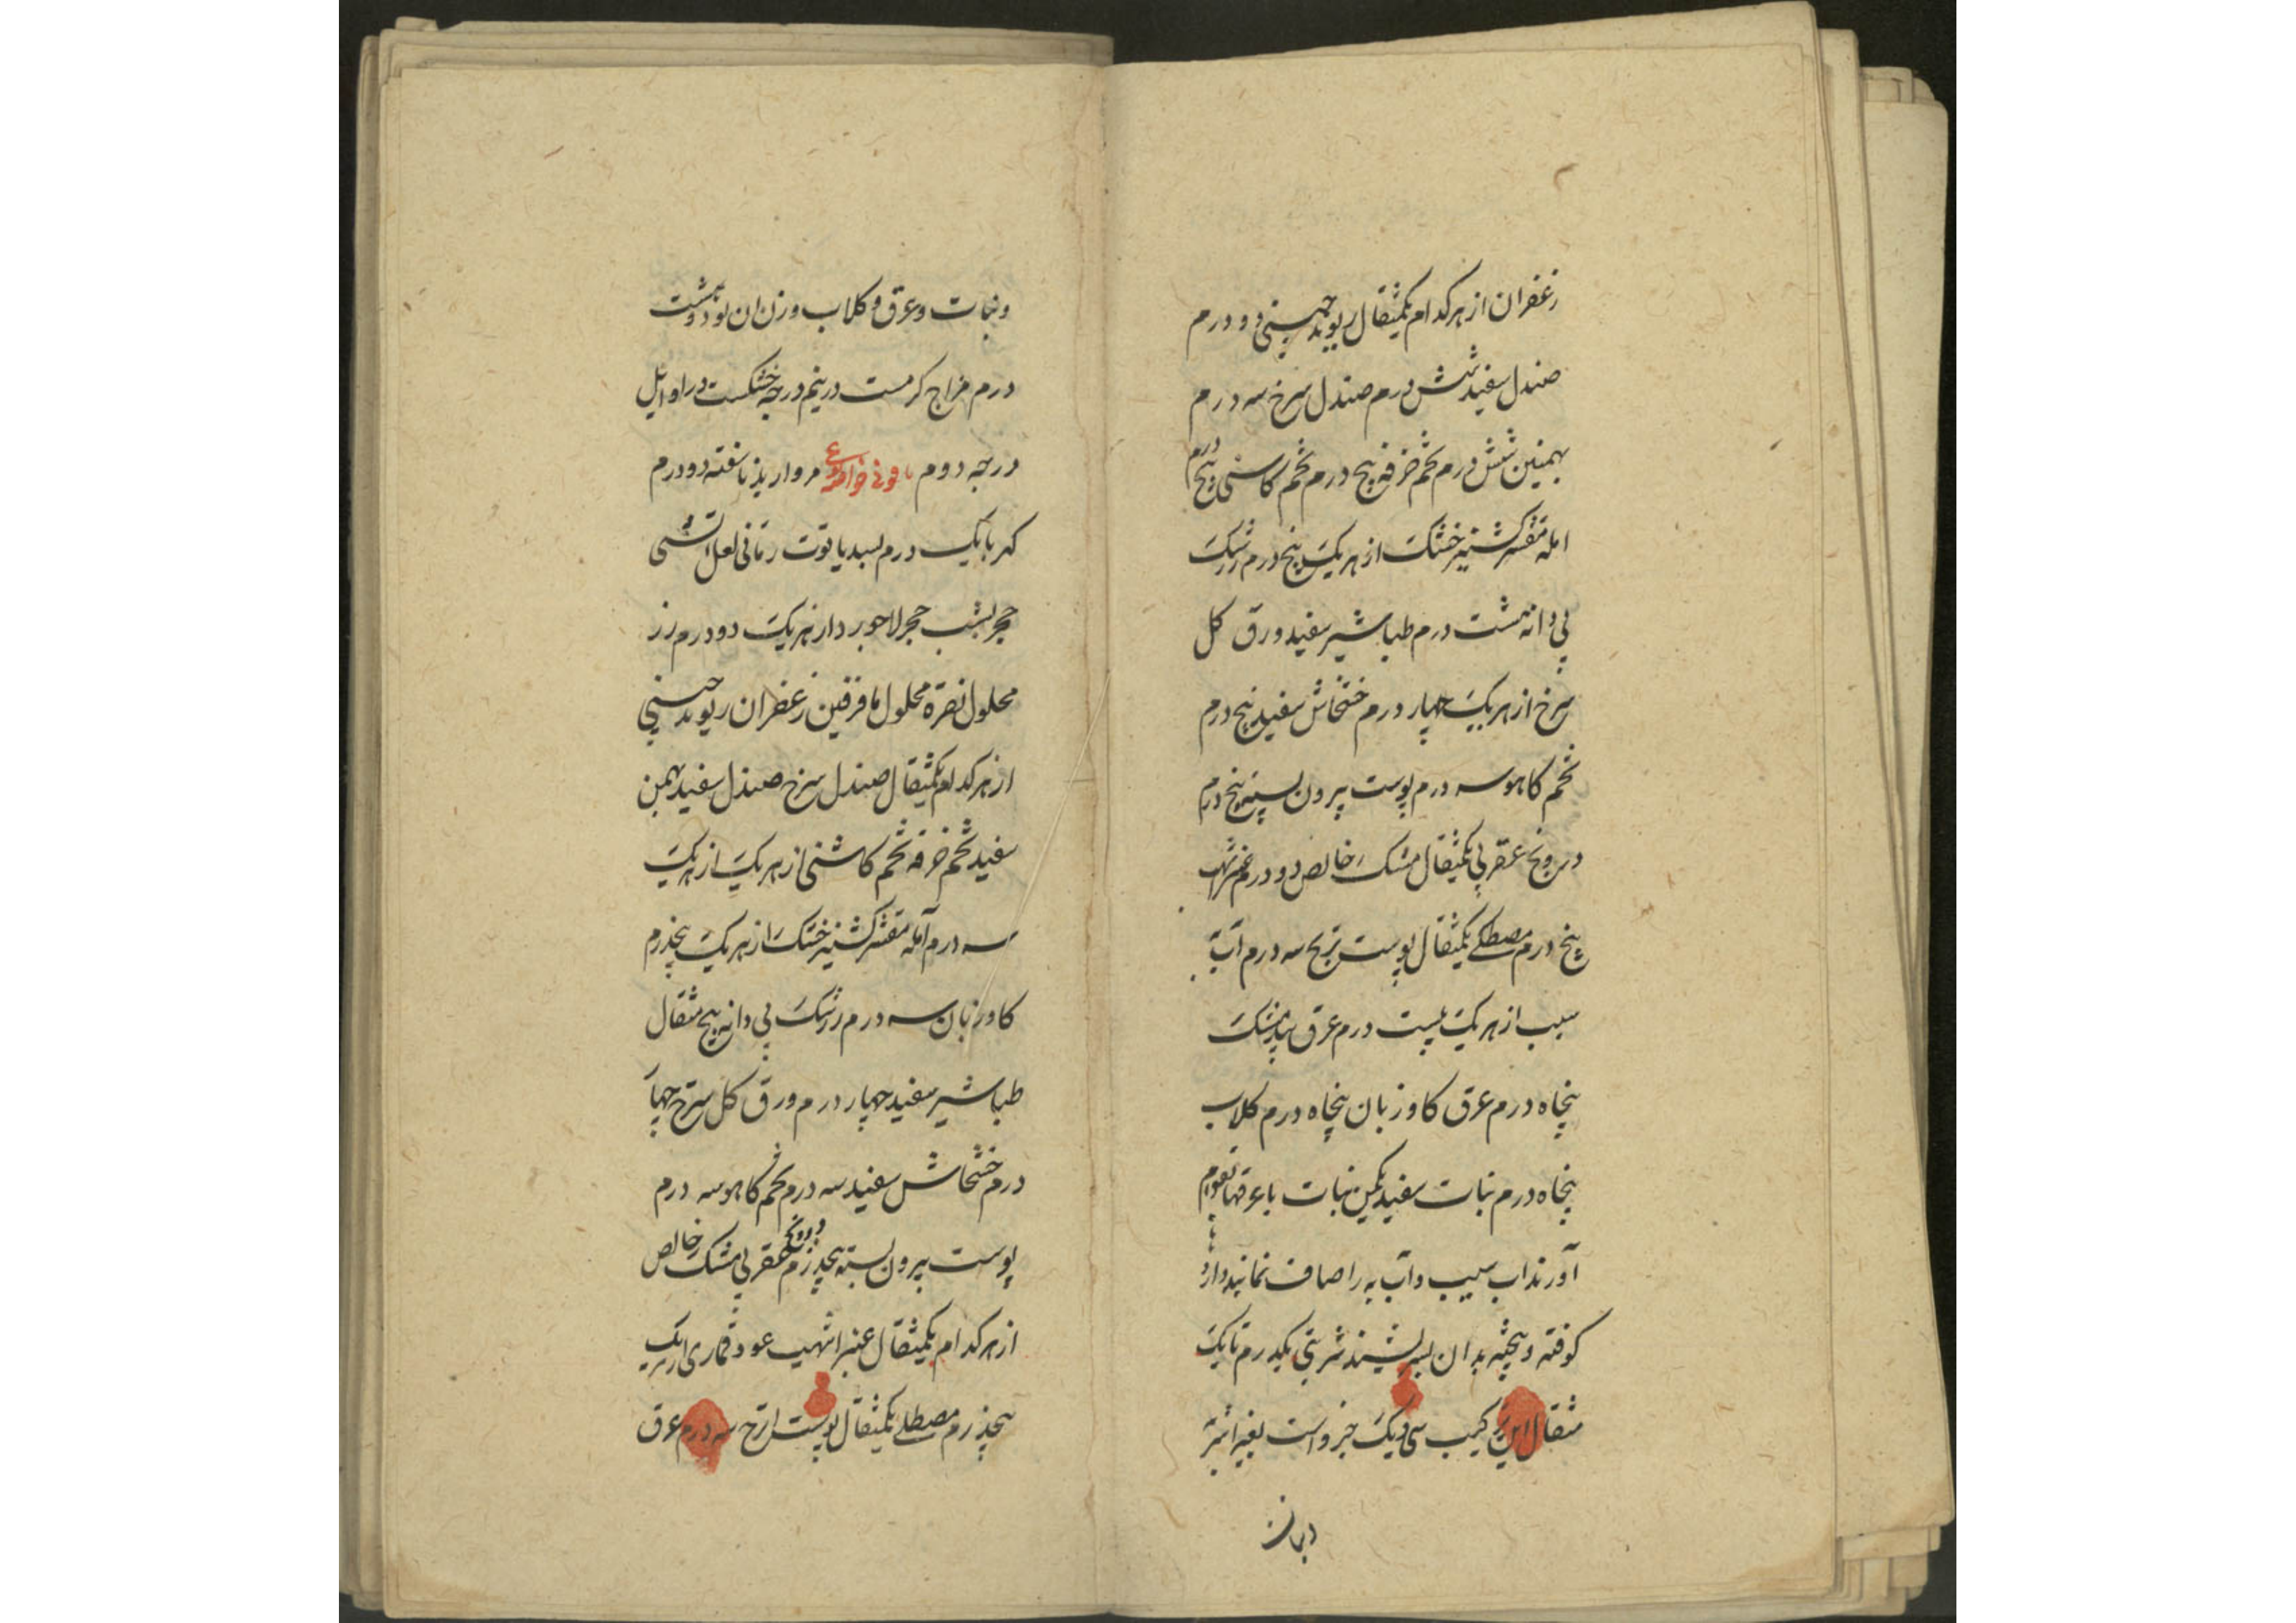 زعفران از هر کدام یکمثقال ریوند چینی دو درم
صندل سفید شش درم صندل سرخ سه درم
بهمنین شش درم تخم خرفه پنج درم تخم کاسنی پنج درم
امله مقشر کشنیز خشک از هر یک پنج درم زرشک
بی دانه هشت درم طباشیر سفید ورق کل
سرخ از هر یک چهار درم خشخاش سفید پنج درم
تخم کاهو سه درم پوست بیرون پسته پنج درم
درونج عقربی یکمثقال مشک خالص دو درم عنبر اشهب
پنج درم مصطکی یکمثقال پوست ترنج سه درم آب
سیب از هر یک بیست درم عرق بیدمشک
پنجاه درم عرق کاوزبان پنجاه درم کلاب
پنجاه درم نبات سفید یکمن نبات با عرقها بقوام
آورند اب سیب و آب به را صاف نمایند و دارو
کوفته و بیخته بدان بسریشند شربتی یکدرم تا یک
مثقال این ترکیب سی و یک جزو است بغیر اشربه
ونبات
ونبات و عرق و کلاب وزن ان نود و هشت
درم مزاج کرمست در نیم درجه خشکست در اوایل
درجه دوم مروارید ناسفته دو درم
کهربا یک درم بسد یاقوت رمانی لعل آتشی
حجر یشب حجر لاجورد از هر یک دو درم زر
محلول نقره محلول مافرفین زعفران ریوند چینی
از هر کدام یکمثقال صندل سرخ صندل سفید بهمن
سفید تخم خرفه تخم کاشنی از هر یک از هر یک
سه درم آمله مقشر کشنیز خشک از هر یک پنجدرم
کاوزبان سه درم زرشک بی دانه پنج مثقال
طباشیر سفید چهار درم ورق کل سرخ چهار
درم خشخاش سفید سه درم تخم کاهو سه درم
پوست بیرون پسته پنجدرم درونج عقربی مشک خالص
از هر کدام یکمثقال عنبر اشهب عود قماری از هر یک
پنجدرم مصطکی یکمثقال پوست اترج سه درم عرق